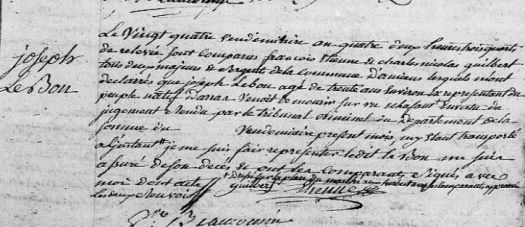 joseph
LeBon
Le Vingt quatre vendemiaire an quatre deux heures trois quarts
de relevée sont comparus françois thienne & charles nicolas guilbert
tous deux majeurs & sergents de la commune d'amiens lesquels m'ont
déclarés que joseph Lebon agé de trente ans environ Le representant du
peuple natif d'arras Venoit de mourir sur un echafaut En vertu du
jugement Rendu par le tribunal criminel du Departement de la
somme du Vendemiaire present mois m'y Etant transporté
a L'jnstant je me suis fait representer ledit Le Bon me suis
assuré de son deces & ont les comparants signés avec
moi dont acte
guilbert thienne
Les deux